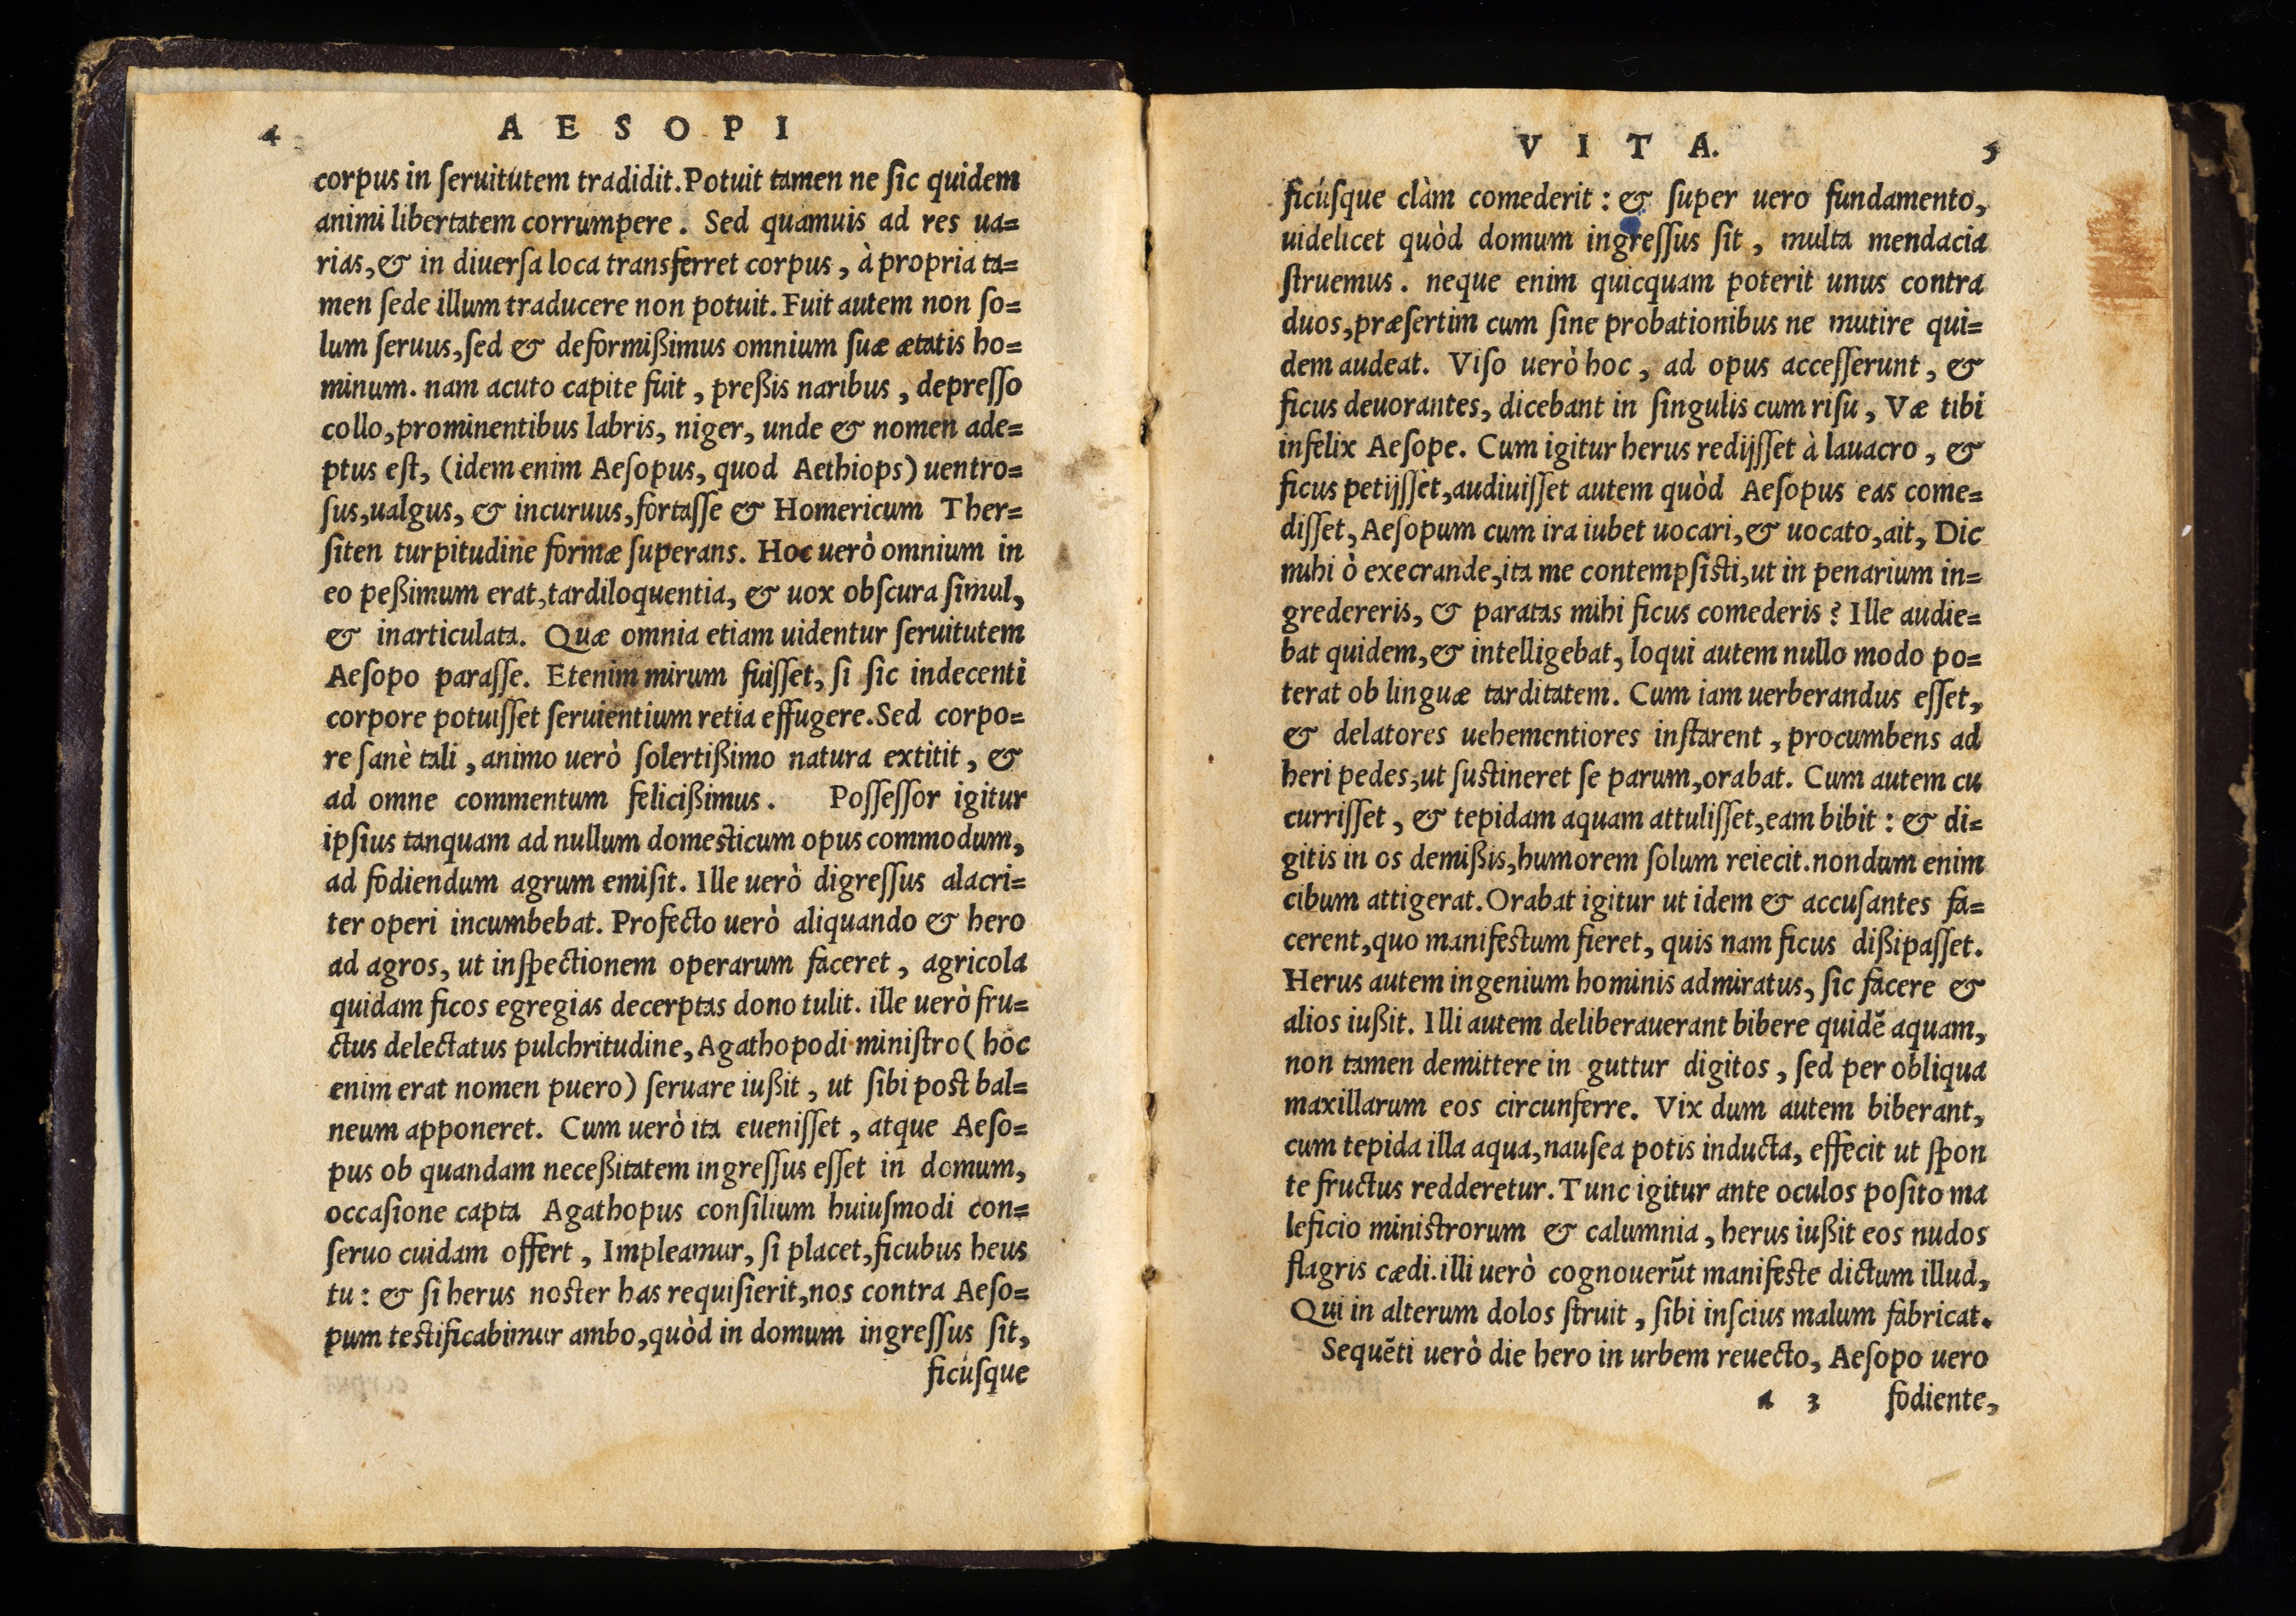 4
AESOPI
corpus in ſeruitutem tradidit. Potuit tamen ne ſic quidem
animi libertatem corrumpere. Sed quamuis ad res ua=
rias, & in diuerſa loca transferret corpus, à propria ta=
men ſede illum traducere non potuit. Fuit autem non ſo=
lum ſeruus, ſed & deformißimus omnium ſuæ ætatis ho=
minum. nam acuto capite fuit, preßis naribus, depreſſo
collo, prominentibus labris, niger, unde & nomen ade=
ptus eſt, (idem enim Aeſopus, quod Aethiops) uentro=
ſus, ualgus, & incuruus, fortaſſe & Homericum Ther=
ſiten turpitudine formæ ſuperans. Hoc uerò omnium in
eo peßimum erat, tardiloquentia, & uox obſcura ſimul,
& inarticulata. Quæ omnia etiam uidentur ſeruitutem
Aeſopo paraſſe. Etenim mirum fuiſſet, ſi ſic indecenti
corpore potuiſſet ſeruientium retia effugere. Sed corpo=
re ſanè tali, animo uerò ſolertißimo natura extitit, &
ad omne commentum felicißimus. Poſſeſſor igitur
ipſius tanquam ad nullum domesticum opus commodum,
ad fodiendum agrum emiſit. Ille uerò digreſſus alacri=
ter operi incumbebat. Profecto uerò aliquando & hero
ad agros, ut inſpectionem operarum faceret, agricola
quidam ficos egregias decerptas dono tulit. ille uerò fru=
ctus delectatus pulchritudine, Agathopodi miniſtro (hoc
enim erat nomen puero) ſeruare iußit, ut ſibi post bal=
neum apponeret. Cum uerò ita eueniſſet, atque Aeſo=
pus ob quandam neceßitatem ingreſſus eſſet in domum,
occaſione capta Agathopus conſilium huiuſmodi con=
ſeruo cuidam offert, Impleamur, ſi placet, ficubus heus
tu: & ſi herus noster has requiſierit, nos contra Aeſo=
pum testificabimur ambo, quòd in domum ingreſſus ſit,
ficúſque
VITA.
5
ficúſque clàm comederit: & ſuper uero fundamento,
uidelicet quòd domum ingreſſus ſit, multa mendacia
ſtruemus. neque enim quicquam poterit unus contra
duos, præſertim cum ſine probationibus ne mutire qui=
dem audeat. Viſo uerò hoc, ad opus acceſſerunt, &
ficus deuorantes, dicebant in ſingulis cum riſu, Væ tibi
infelix Aeſope. Cum igitur herus redijſſet à lauacro, &
ficus petijſſet, audiuiſſet autem quòd Aeſopus eas come=
diſſet, Aeſopum cum ira iubet uocari, & uocato, ait, Dic
mihi ò execrande, ita me contempſisti, ut in penarium in=
gredereris, & paratas mihi ficus comederis? Ille audie=
bat quidem, & intelligebat, loqui autem nullo modo po=
terat ob linguæ tarditatem. Cum iam uerberandus eſſet,
& delatores uehementiores inſtarent, procumbens ad
heri pedes, ut ſustineret ſe parum, orabat. Cum autem cu
curriſſet, & tepidam aquam attuliſſet, eam bibit: & di=
gitis in os demißis, humorem ſolum reiecit. nondum enim
cibum attigerat. Orabat igitur ut idem & accuſantes fa=
cerent, quo manifestum fieret, quis nam ficus dißipaſſet.
Herus autem ingenium hominis admiratus, ſic facere &
alios iußit. Illi autem deliberauerant bibere quidē aquam,
non tamen demittere in guttur digitos, ſed per obliqua
maxillarum eos circunferre. Vix dum autem biberant,
cum tepida illa aqua, nauſea potis inducta, effecit ut ſpon
te fructus redderetur. Tunc igitur ante oculos poſito ma
leficio ministrorum & calumnia, herus iußit eos nudos
flagris cædi. illi uerò cognouerūt manifeste dictum illud,
Qui in alterum dolos ſtruit, ſibi inſcius malum fabricat.
Sequēti uerò die hero in urbem reuecto, Aeſopo uero
a 3 fodiente,